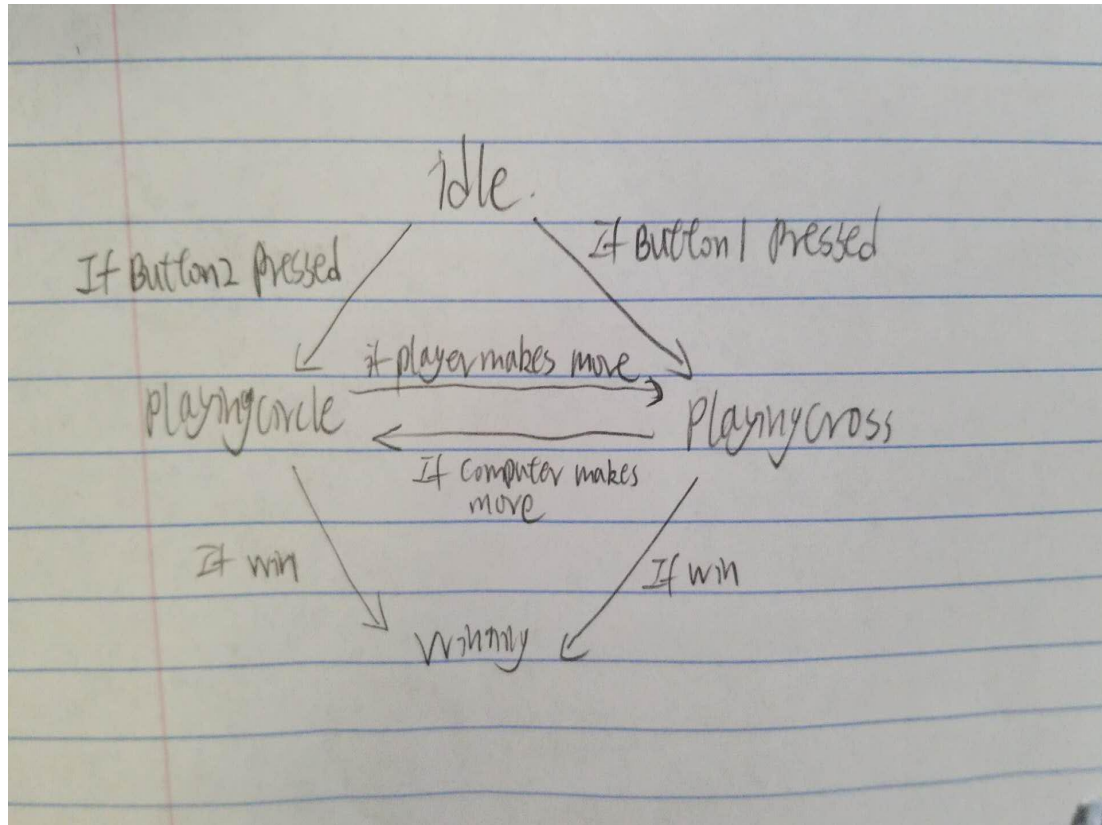 idle.
If Button1 Pressed
If Button2 Pressed
if player makes move
PlayingCircle
PlayingCross
If computer makes
move
If win
If win
Winning